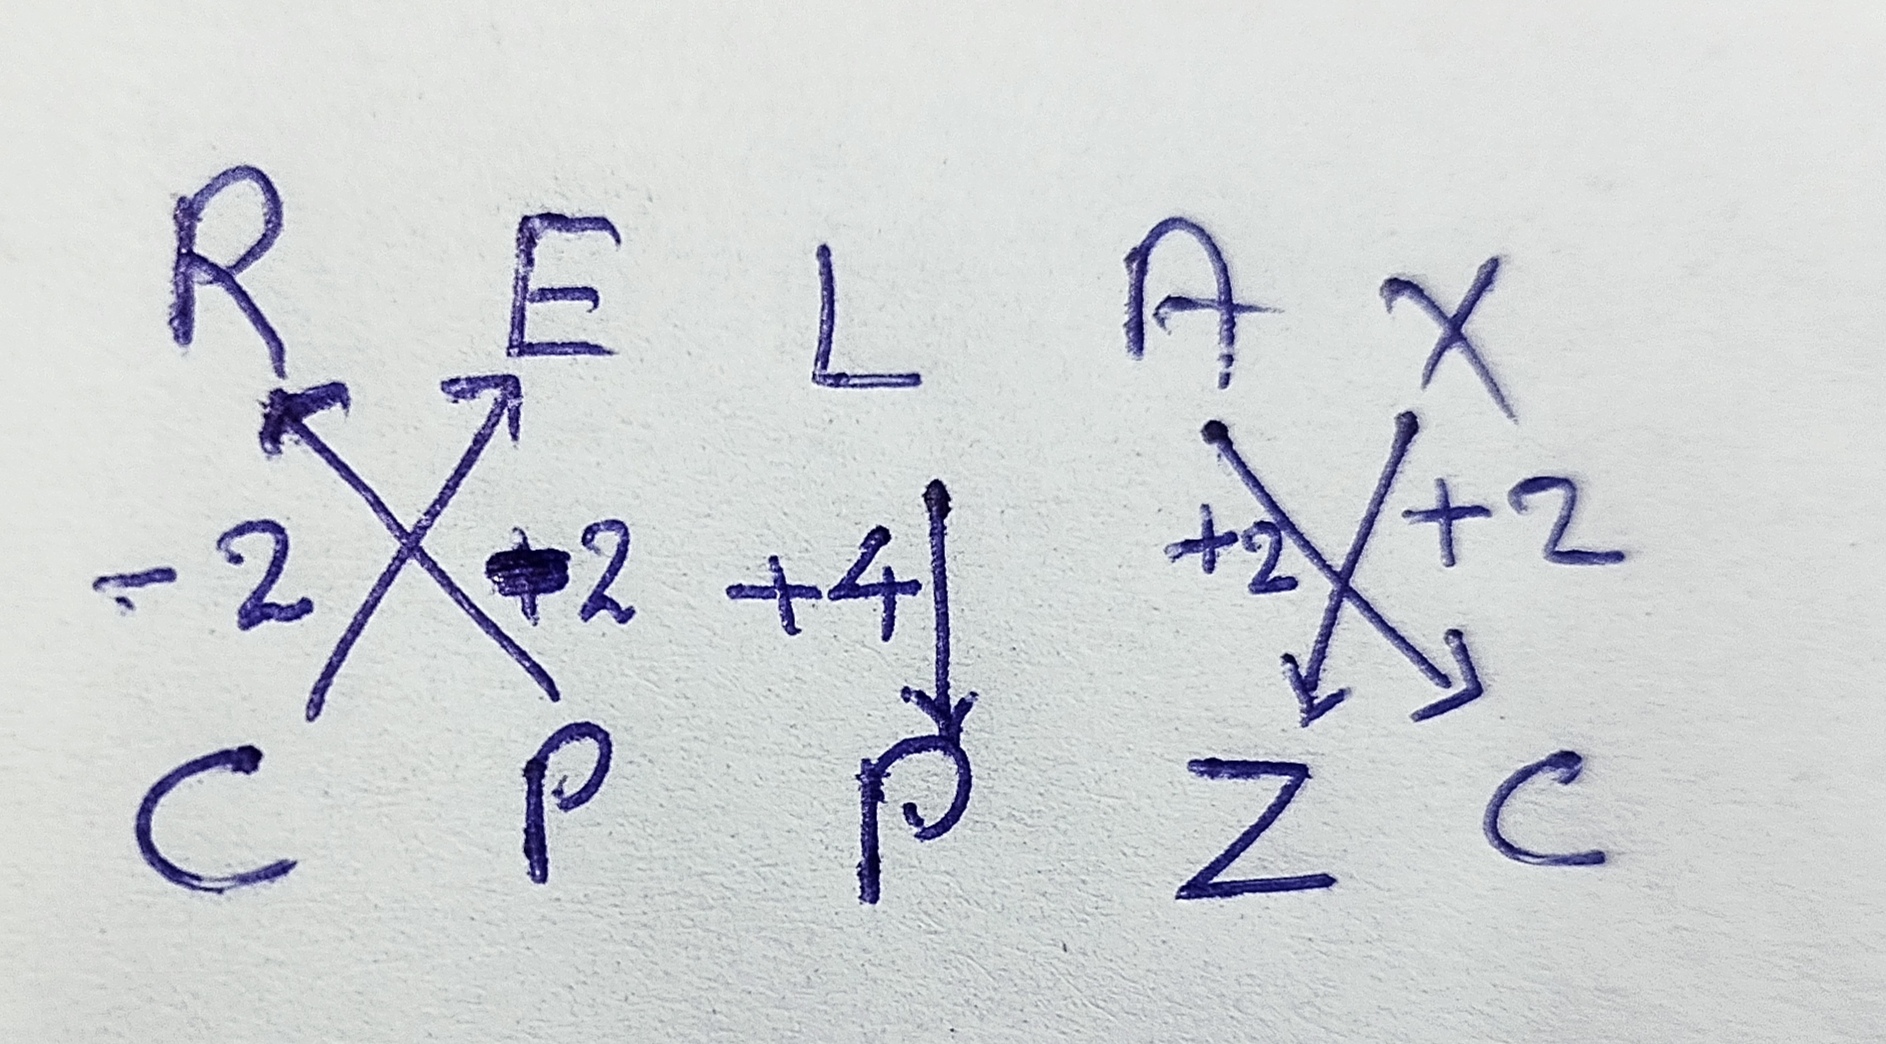 R E L A X
- 2 +2 +4 +2 +2
C P P Z C